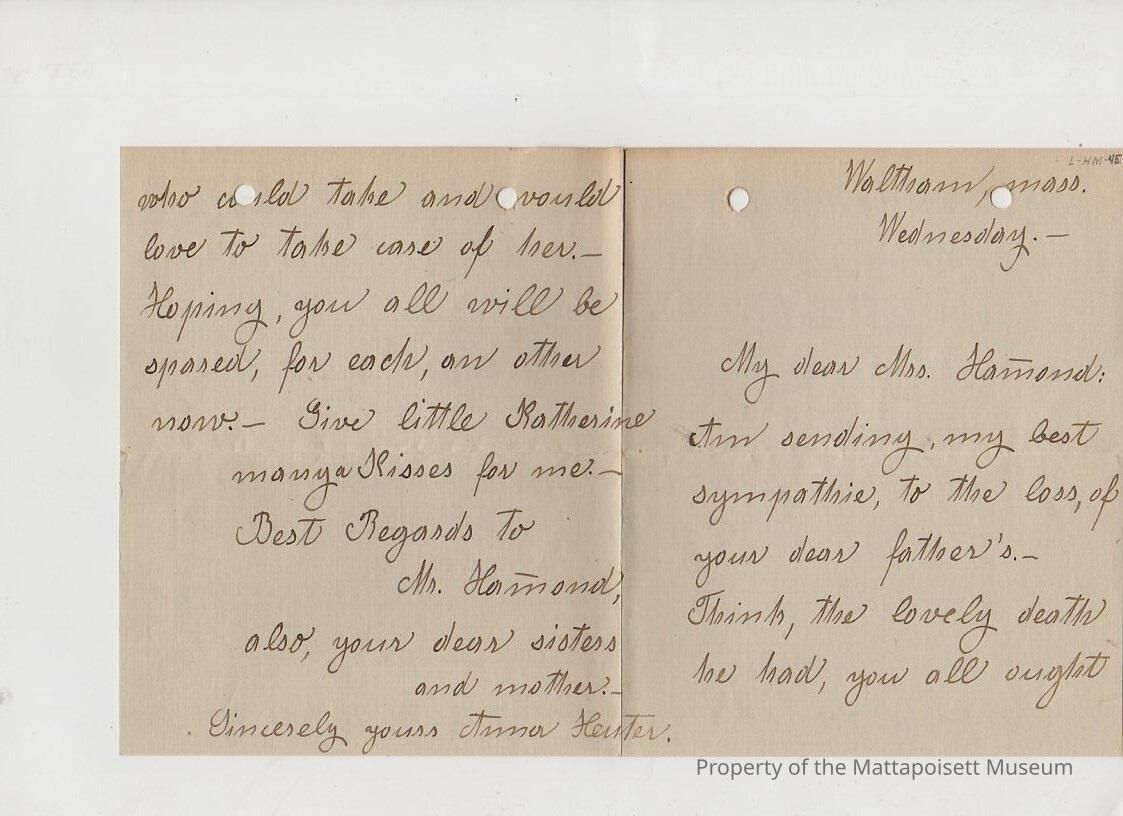 L-HM-45
Waltham, mass.
Wednesday. —
My dear Mrs. Ham̄ond:
Am sending, my best
sympathie, to the loss, of
your dear father's. —
Think, the lovely death
he had, you all ought
who could take and would
love to take care of her. —
Hoping, you all will be
spared, for each, an other
now. — Give little Katherine
manya Kisses for me. —
Best Regards to
Mr. Ham̄ond,
also, your dear sisters
and mother. —
Sincerely yours Anna Heuter.
Property of the Mattapoisett Museum